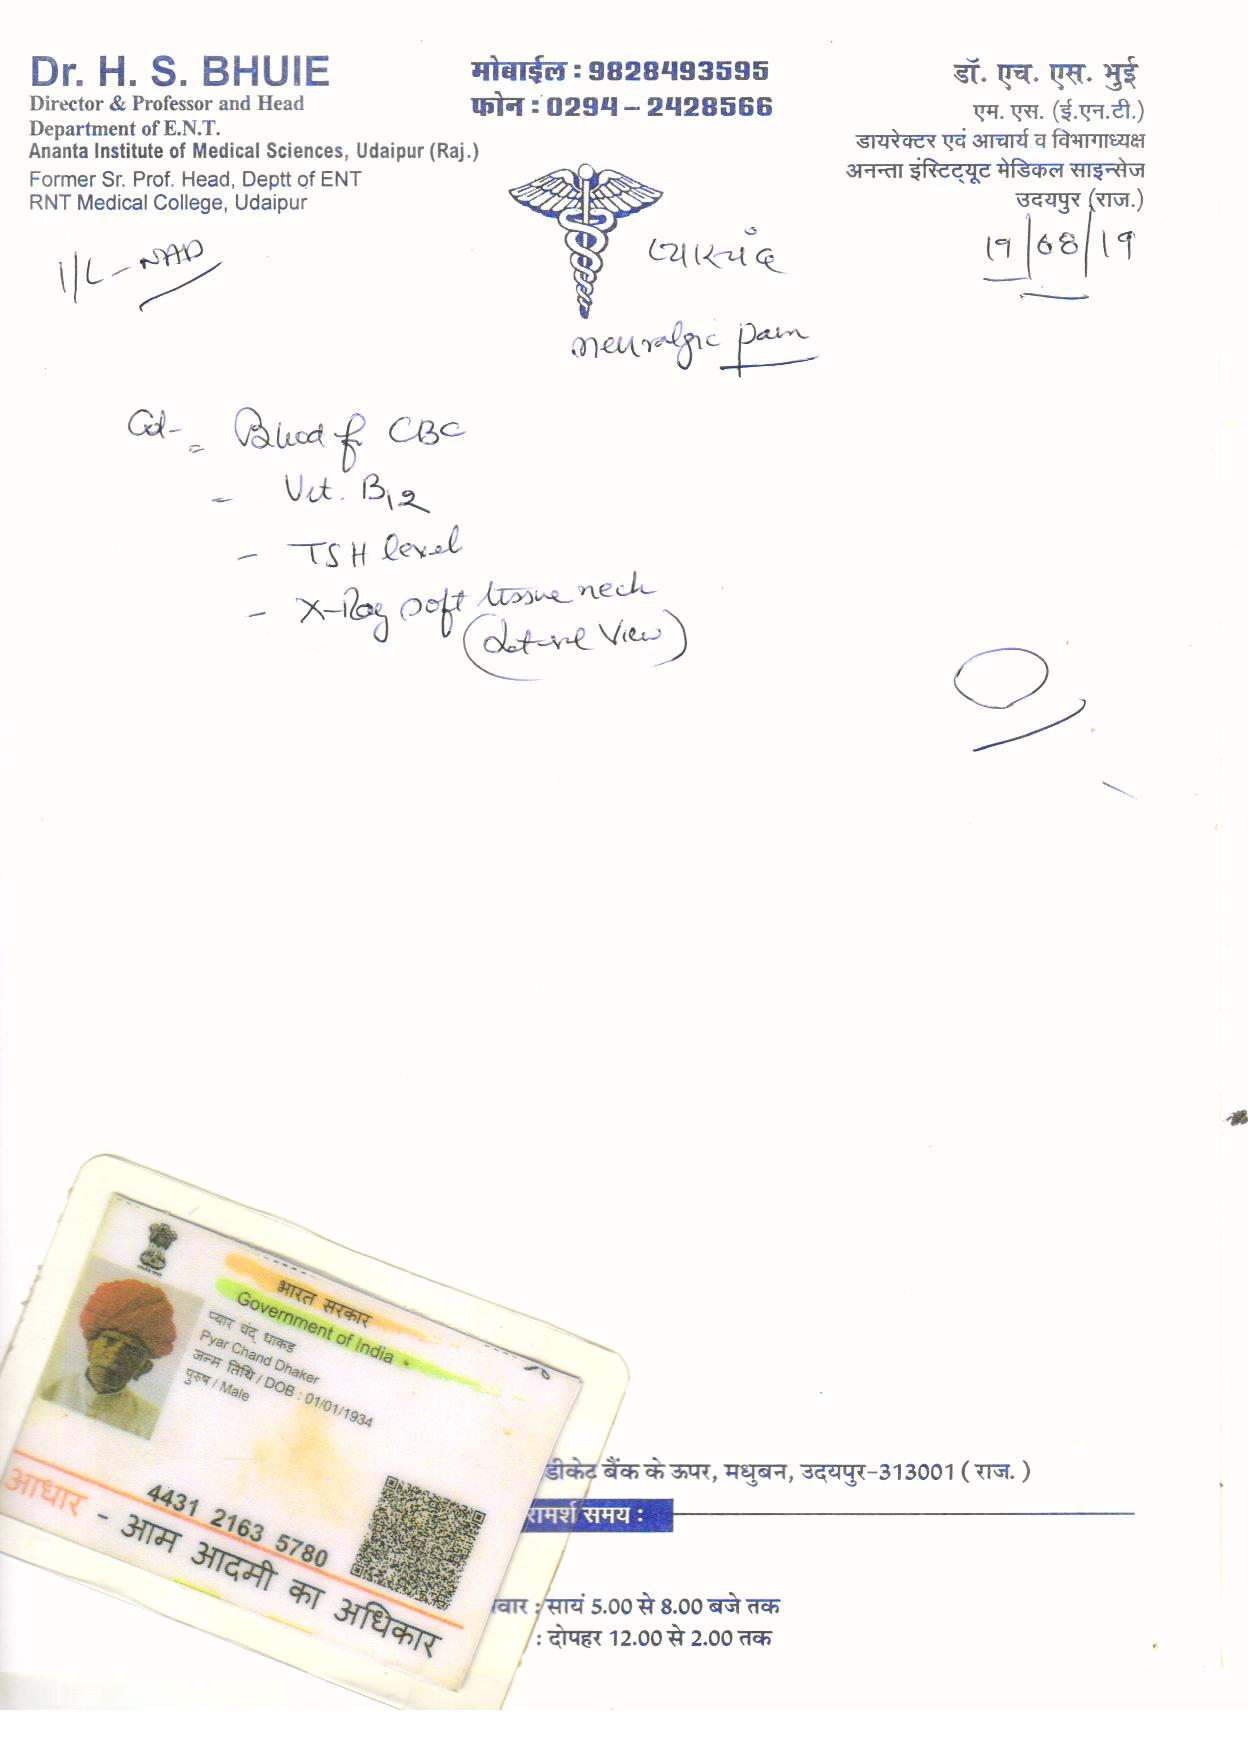 Dr. H. S. BHUIE
Director & Professor and Head
Department of E.N.T.
Ananta Institute of Medical Sciences, Udaipur (Raj.)
Former Sr. Prof. Head, Deptt of ENT
RNT Medical College, Udaipur
मोबाईल : 9828493595
फोन : 0294 – 2428566
डॉ. एच. एस. भुई
एम. एस. (ई.एन.टी.)
डायरेक्टर एवं आचार्य व विभागाध्यक्ष
अनन्ता इंस्टिट्यूट मेडिकल साइन्सेज
उदयपुर (राज.)
19/08/19
I/L - NAD
neuralgic pain
Blood f CBC
- Vit. B12
- TSH level
- X-Ray soft tissue neck
(Lateral View)
भारत सरकार
Government of India
प्यार चंद धाकड
Pyar Chand Dhaker
जन्म तिथि / DOB : 01/01/1934
पुरुष / Male
4431 2163 5780
आधार - आम आदमी का अधिकार
डीकेट बैंक के ऊपर, मधुबन, उदयपुर-313001 ( राज. )
रामर्श समय :
वार : सायं 5.00 से 8.00 बजे तक
: दोपहर 12.00 से 2.00 तक